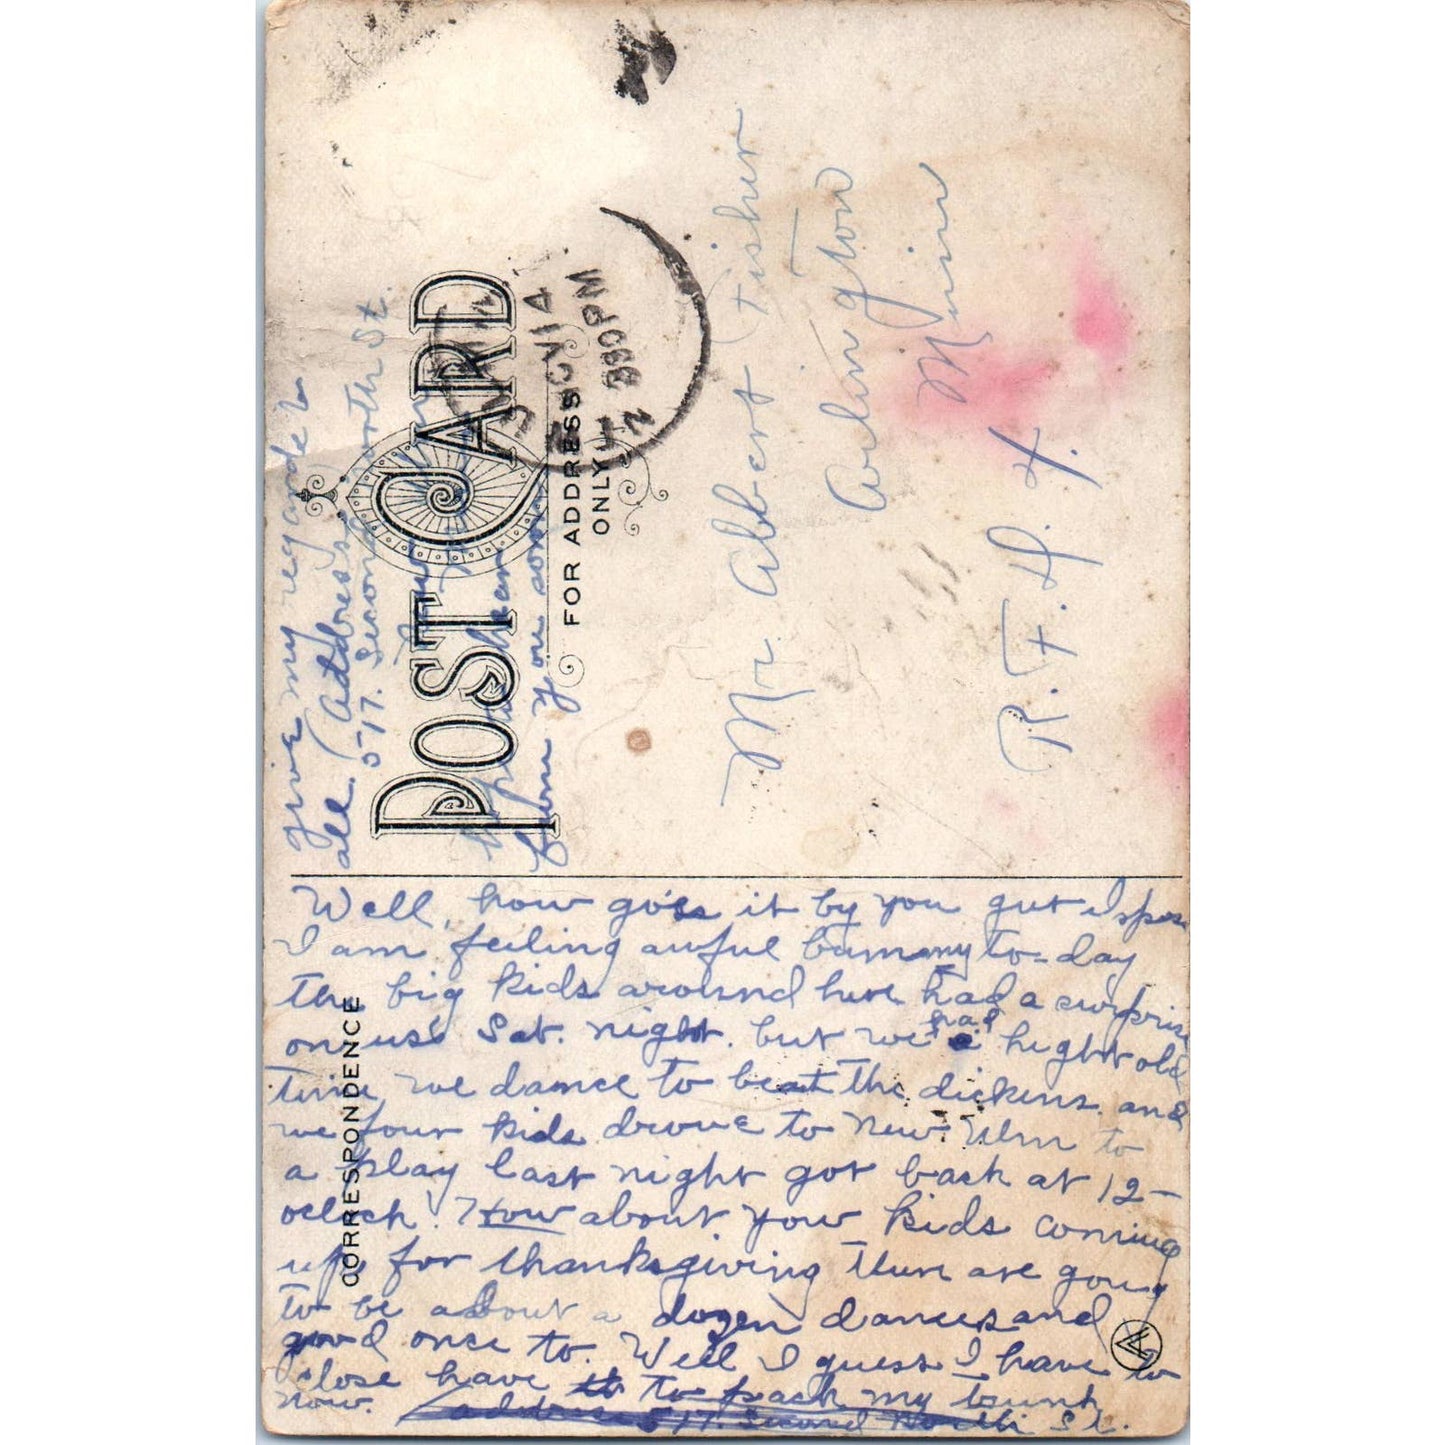 Well, how goes it by you gut I spose
I am feeling awful bummy to-day
The big kids around here had a surprise
on us Sat. night. but we had a hight old
time, we dance to beat the dickens. and
we four kids drove to New Ulm to
a play last night got back at 12-
oclock. How about you kids coming
up for thanksgiving There are going
to be about a dozen dances and
good once to. Well I guess I have to
close have to pack my trunk
now.
address 517. Second North St.
CORRESPONDENCE
give my regards
all. (Address
517. Second north St.
hope to hear
from you soon
POST CARD
FOR ADDRESS
ONLY
330PM
Mr Abbert Fisher
Arlington
Minn
R.F.D. 4.